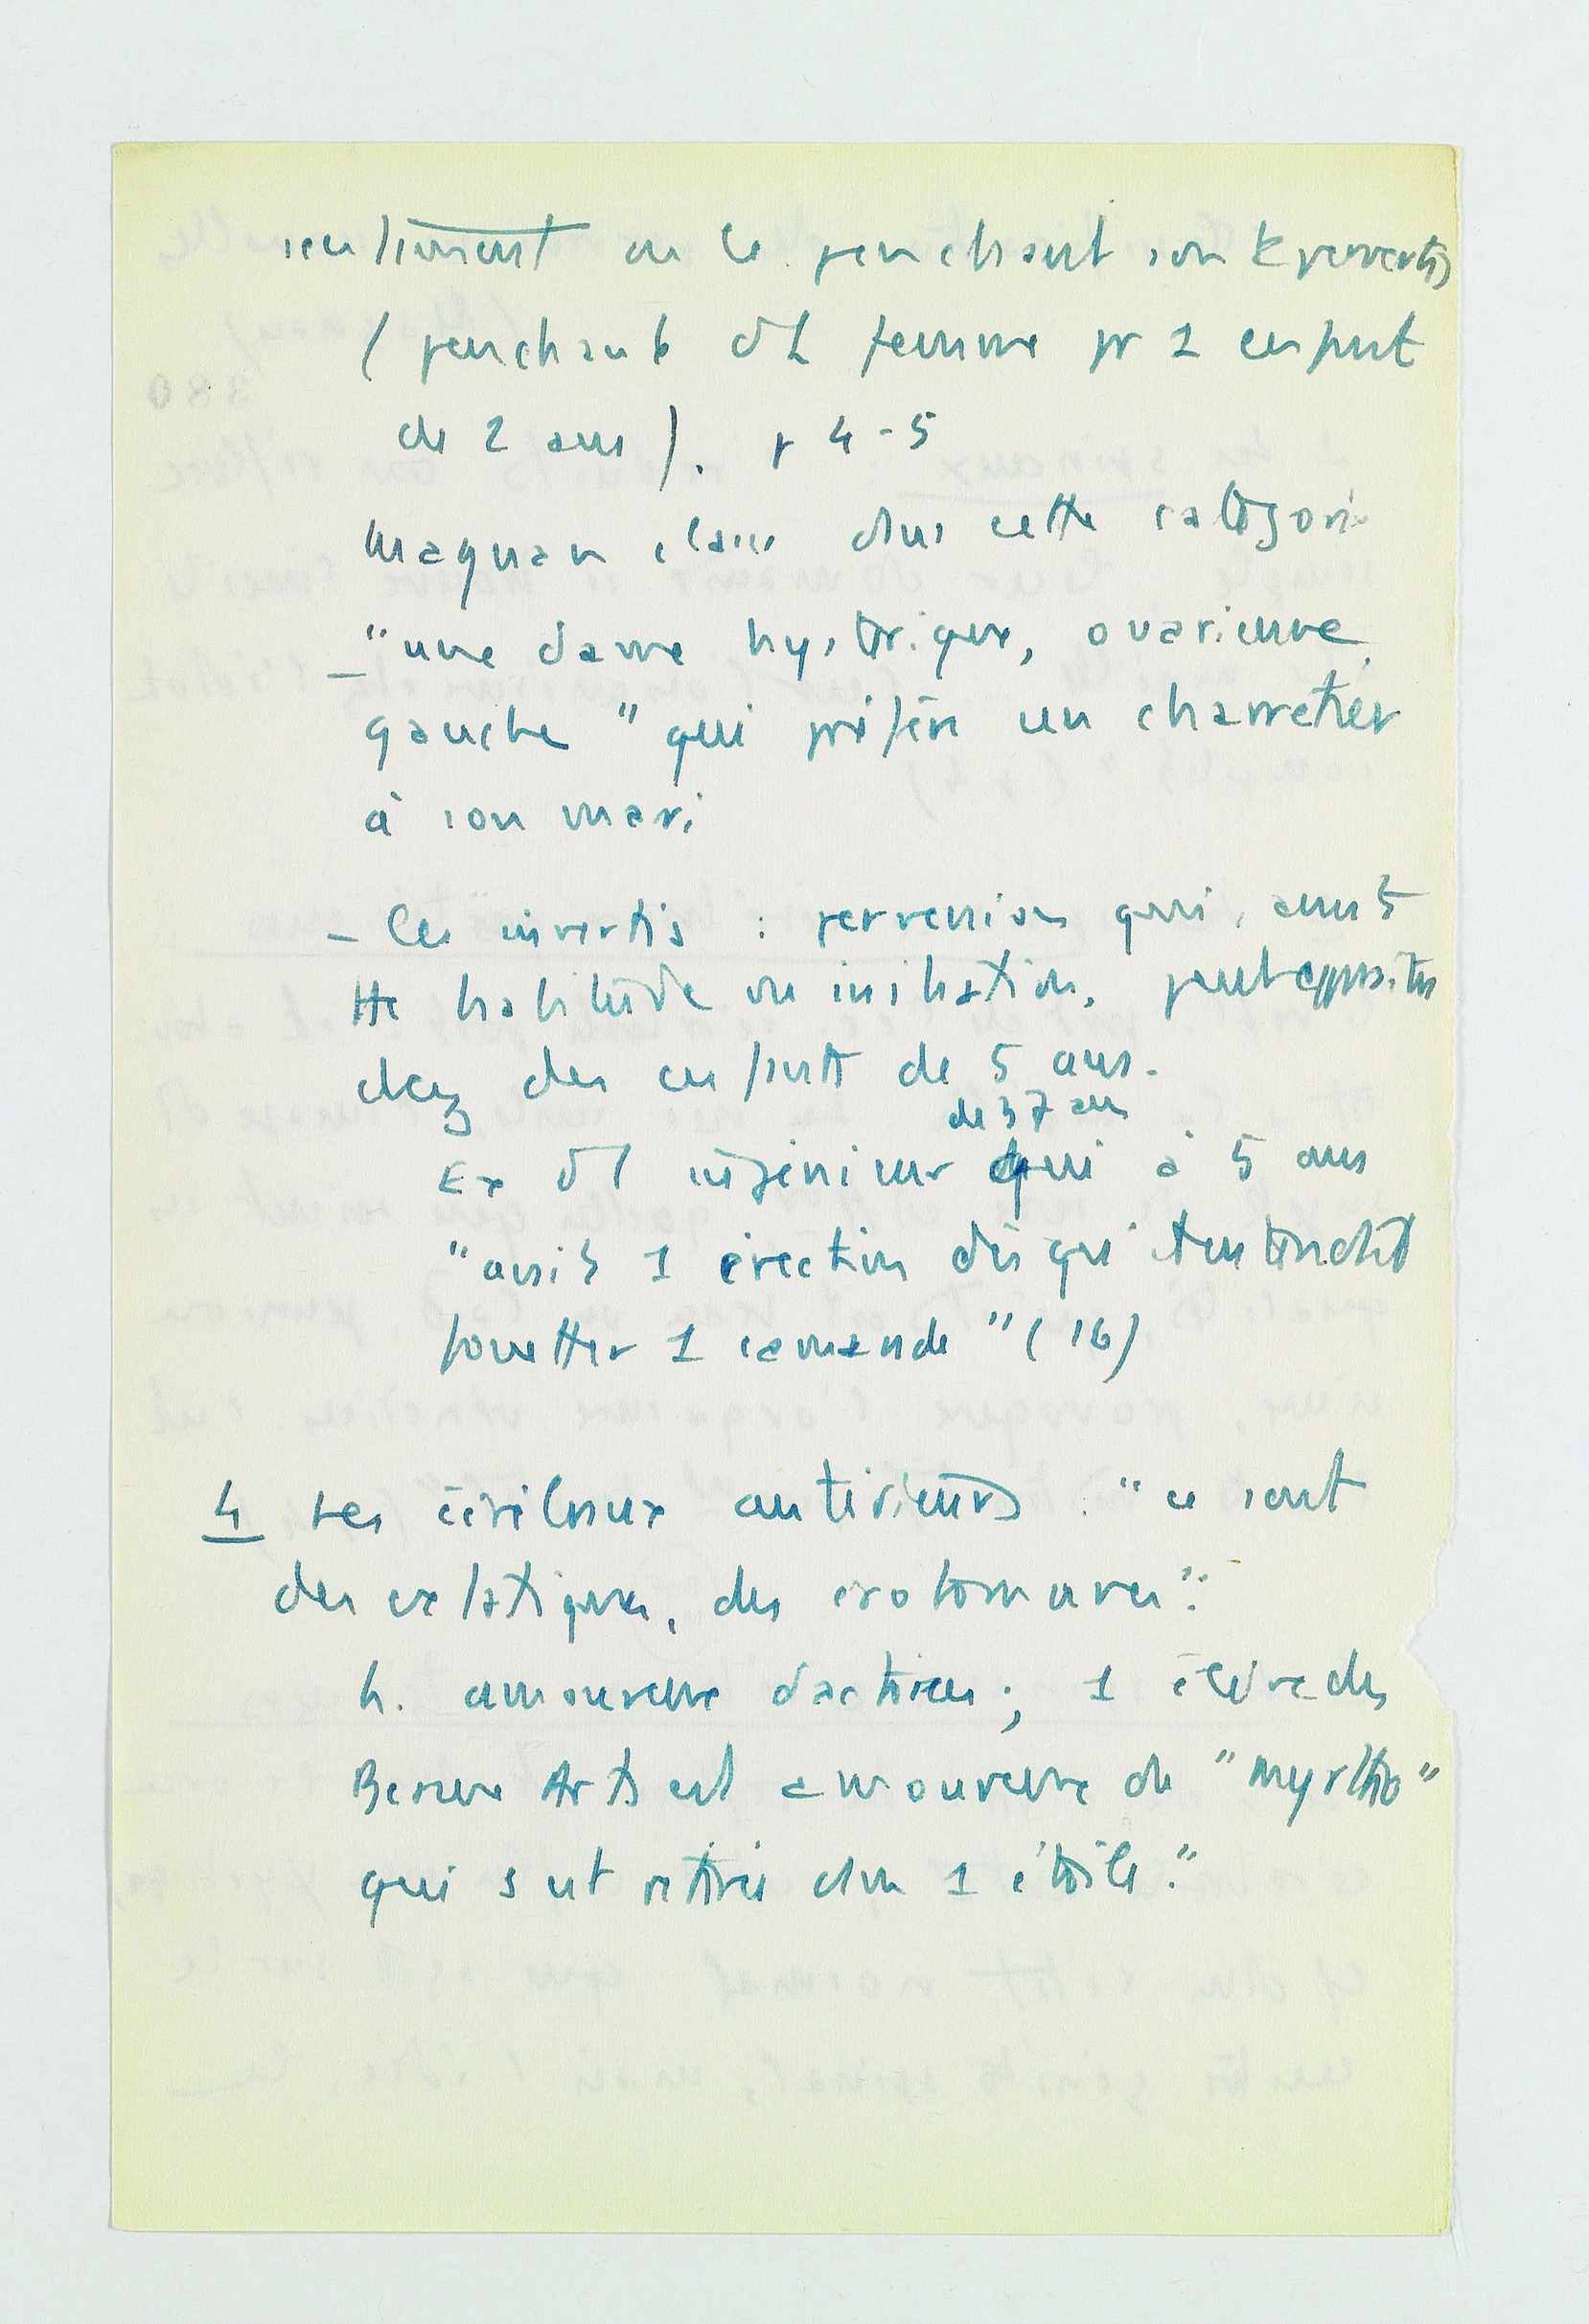 sentiment ou le penchant son t pervertis
( penchant d1 femme pr 1 enfant
de 2 ans ). p 4-5
Magnan classe dans cette catégorie
"une dame hystérique, ovarienne
gauche" qui préfère un charretier
à son mari
- les invertis : perversion qui, avant
tte habitude ou initiation, peut apparaître
chez des enfants de 5 ans.
de 37 ans
Ex d1 ingénieur qui à 5 ans
"avait 1 érection dès qu'il entendait
fouetter 1 camarade" (16)
4 Les cérébraux antérieurs : "ce sont
des extatiques, des érotomanes".
h. amoureux d'actrices ; 1 élève des
Beaux Arts est amoureux de "Myrtho"
qui s'est retirée dans 1 étoile."